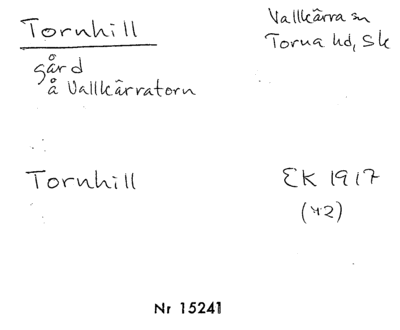 Tornhill
Vallkärra sn
Torna hd, Sk
gård
å Vallkärratorn
Tornhill
EK 1917
(42)
Nr 15241